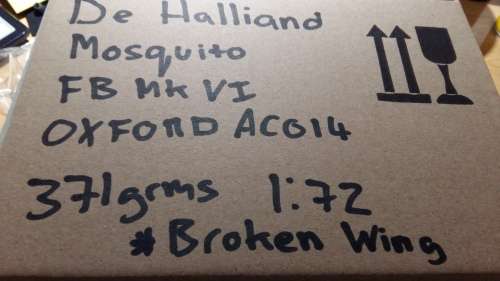 De Halliand
Mosquito
FB Mk VI
OXFORD ACO14
371grms 1:72
* Broken Wing